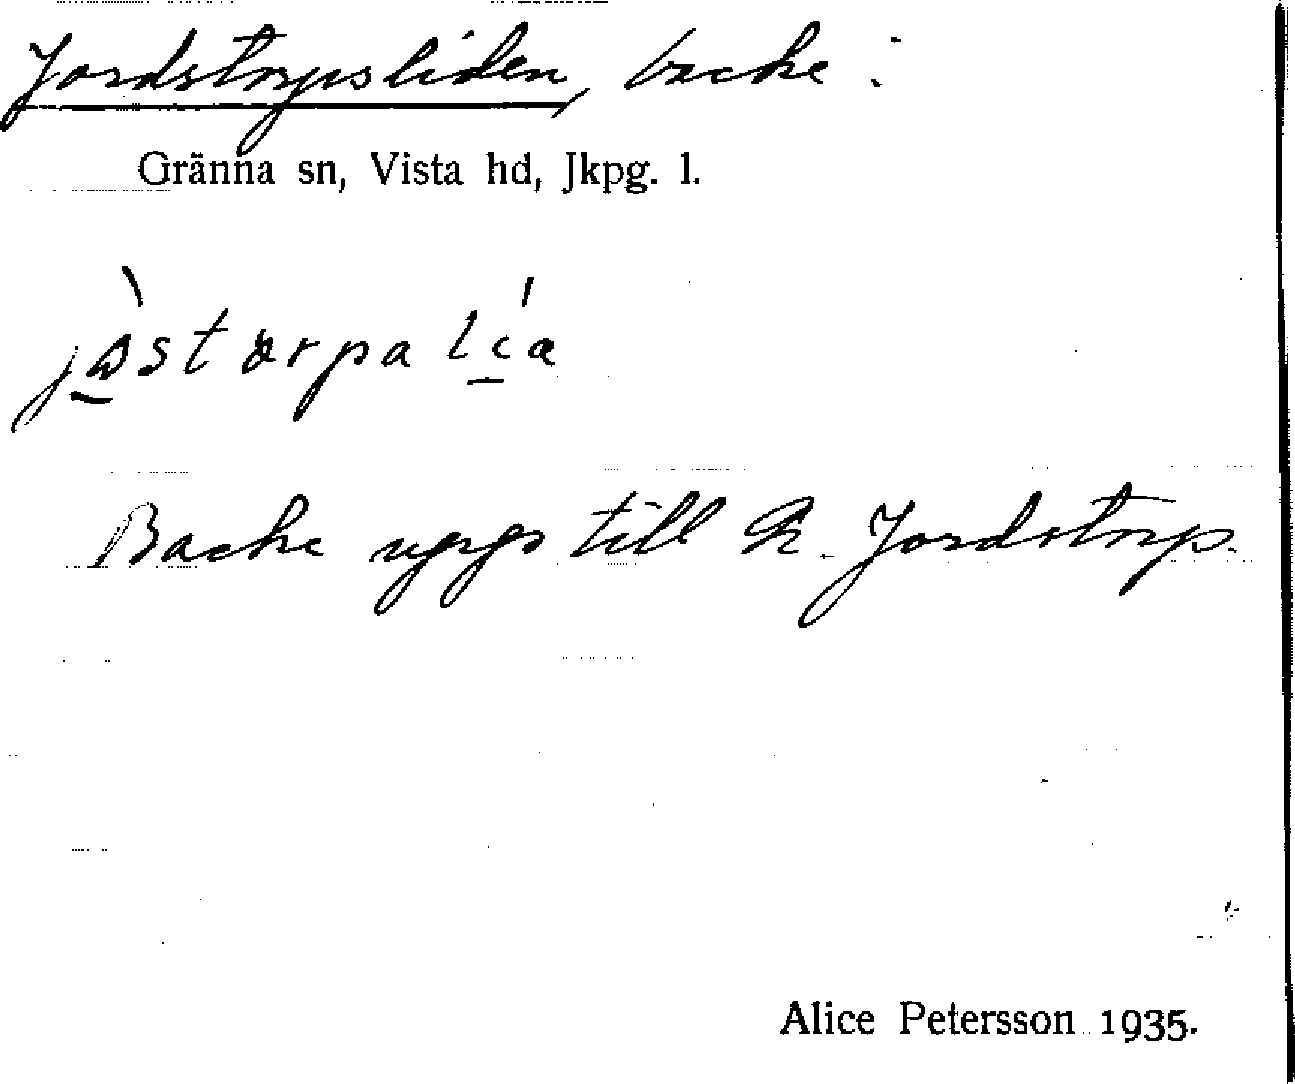 Jordstorpsliden, backe.
Gränna sn, Vista hd, Jkpg. l.
Backe uppe till St. Jordstorp.
Alice Petersson 1935.